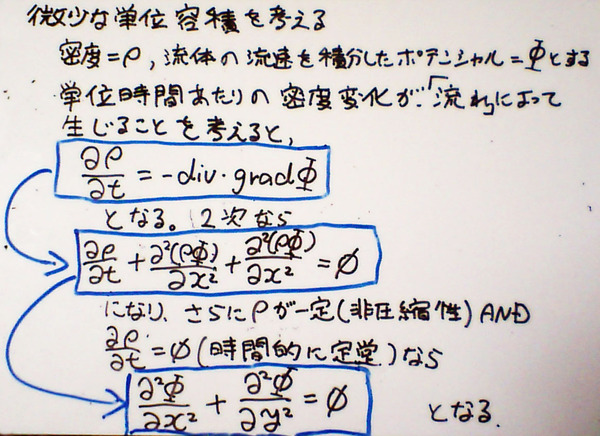 微少な単位容積を考える
密度=ρ, 流体の流速を積分したポテンシャル=Φとする
単位時間あたりの密度変化が、「流れ」によって
生じることを考えると,
∂ρ/∂t = -div・gradΦ
となる。2次なら
∂ρ/∂t + ∂²(ρΦ)/∂x² + ∂²(ρΦ)/∂x² = 0
になり、さらにρが一定(非圧縮性)AND
∂ρ/∂t = 0 (時間的に定堂)なら
∂²Φ/∂x² + ∂²Φ/∂y² = 0 となる.